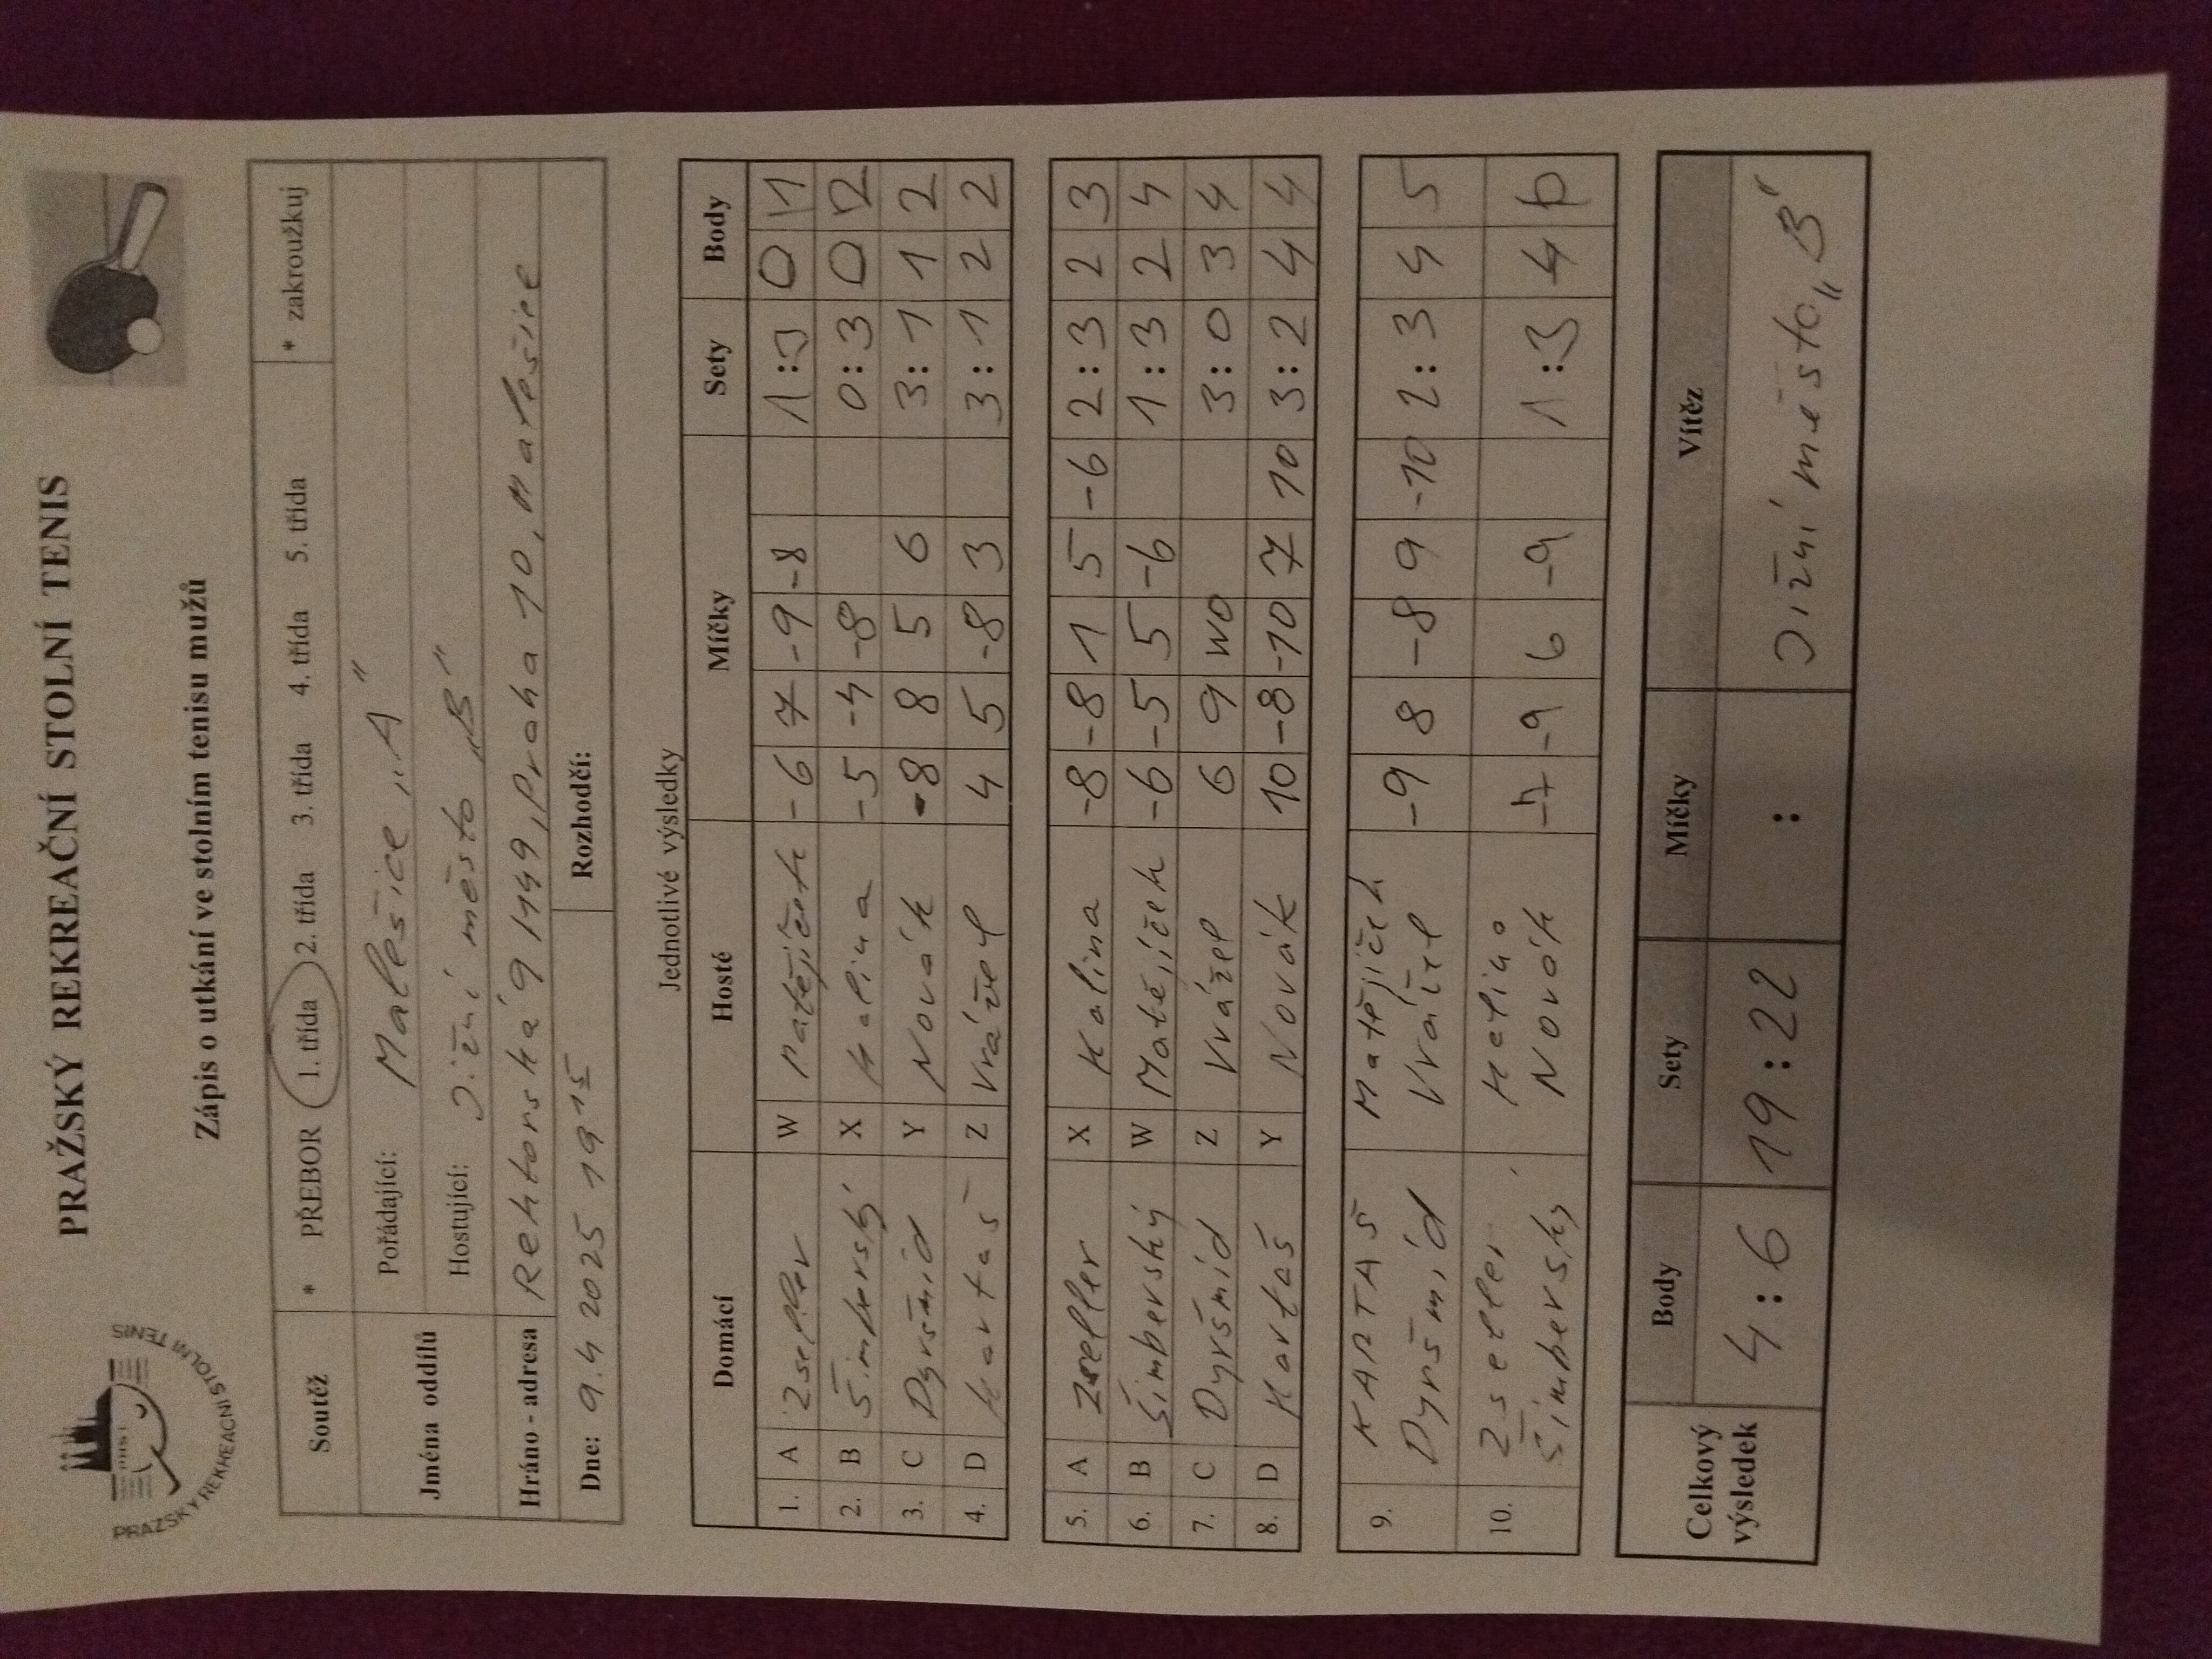 PRAŽSKÝ REKREAČNÍ STOLNÍ TENIS
PRAŽSKÝ REKREAČNÍ STOLNÍ TENIS
Zápis o utkání ve stolním tenisu mužů
Soutěž * PŘEBOR 1. třída 2. třída 3. třída 4. třída 5. třída * zakroužkuj
Jména oddílů
Pořádající: Malešice „A"
Hostující: Jižní město „B"
Hráno - adresa Rektorská 9 1449, Praha 10, Malešice
Dne: 9.4 2025 19 15 Rozhodčí:
Jednotlivé výsledky
Domácí Hosté Míčky Sety Body
1. A Zseller W Matějíček -6 7 -9 -8 1:3 0 1
2. B Šimberský X Kalina -5 -4 -8 0:3 0 2
3. C Dyršmíd Y Novák -8 8 5 6 3:1 1 2
4. D Kartaš Z Vrážel 4 5 -8 3 3:1 2 2
5. A Zseller X Kalina -8 -8 1 5 -6 2:3 2 3
6. B Šimberský W Matějíček -6 -5 5 -6 1:3 2 4
7. C Dyršmíd Z Vrážel 6 9 WO 3:0 3 4
8. D Kartaš Y Novák 10 -8 -10 7 10 3:2 4 4
9. KARTAŠ Matějíček -9 8 -8 9 -10 2:3 4 5
Dyršmíd Vrážel
10. Zseller Kalina -7 -9 6 -9 1:3 4 6
Šimberský Novák
Celkový výsledek Body Sety Míčky Vítěz
4:6 19:22 : Jižní město „B"